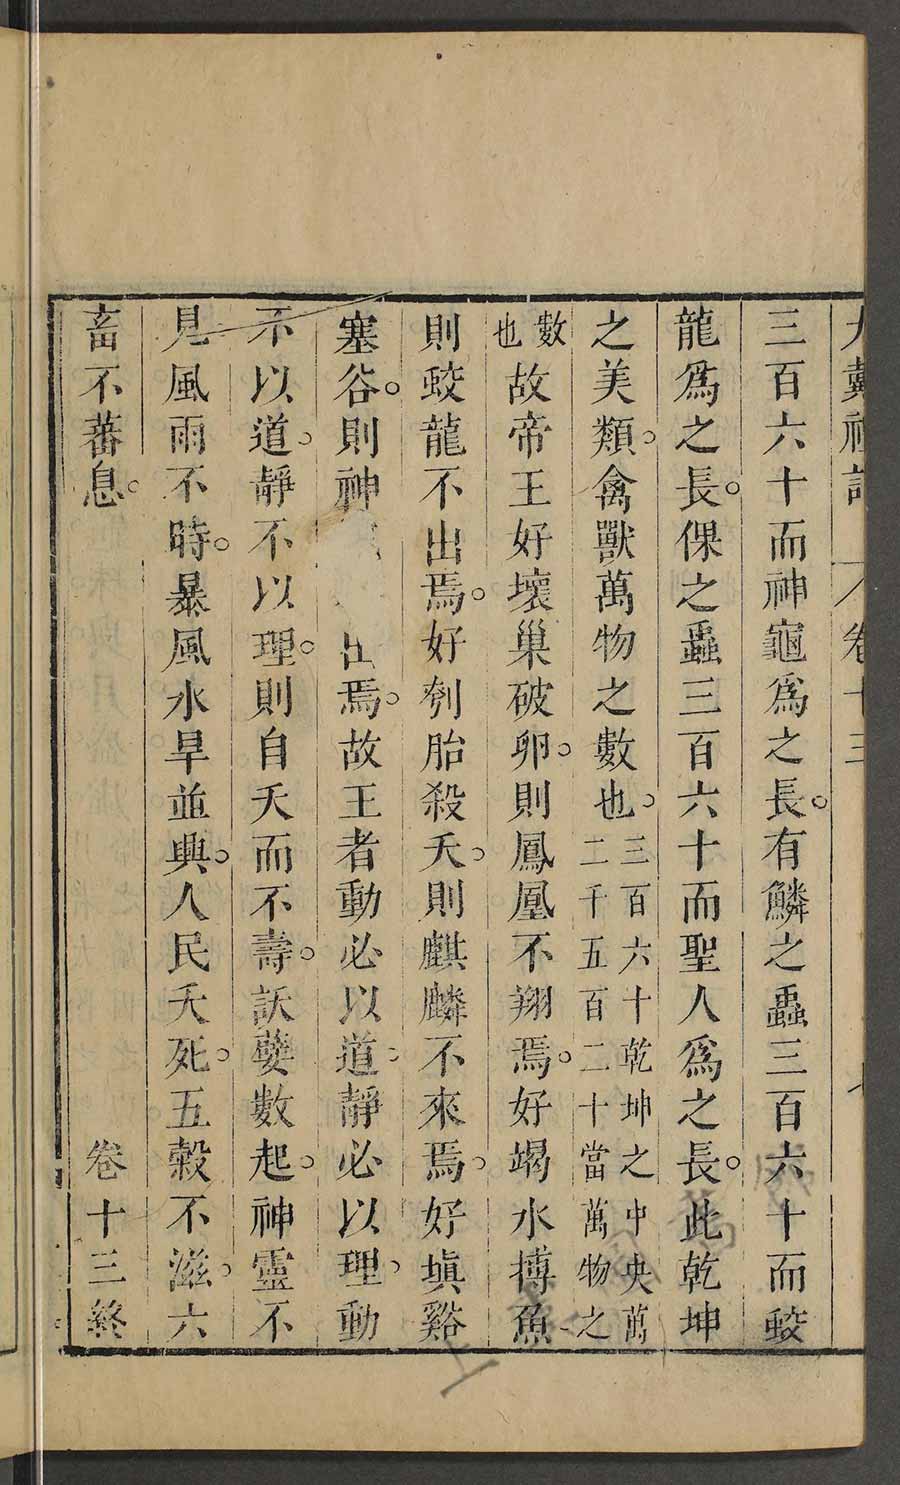 大戴禮記 卷十三
三百六十而神龜爲之長有鱗之蟲三百六十而蛟
龍爲之長倮之蟲三百六十而聖人爲之長此乾坤
之美類禽獸萬物之數也三百六十乾坤之中央萬二千五百二十當萬物之
數也故帝王好壞巢破卵則鳳凰不翔焉好竭水搏魚
則蛟龍不出焉好刳胎殺夭則麒麟不來焉好塡谿
塞谷則神出焉故王者動必以道靜必以理動
不以道靜不以理則自夭而不壽訞孽數起神靈不
見風雨不時暴風水旱並興人民夭死五穀不滋六
畜不蕃息 卷十三終